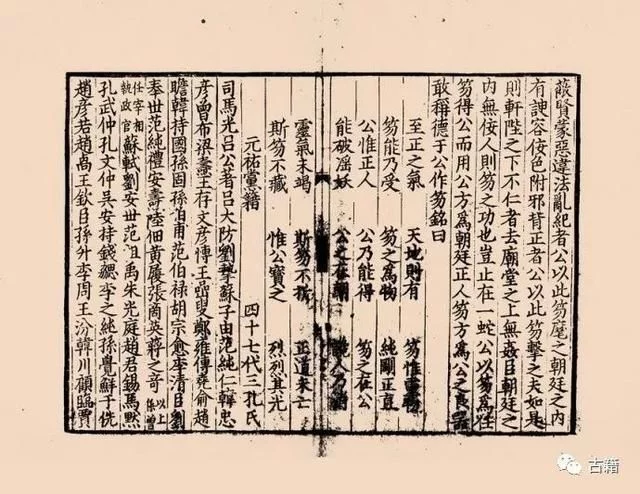 蔽賢蒙惡違法亂紀者公以此笏麾之朝廷之內
有諛容佞色附邪背正者公以此笏擊之夫如是
則軒陛之下不仁者去廟堂之上無姦臣朝廷之
內無佞人則笏之功也豈止在一蛇公以笏爲任
笏得公而用公方爲朝廷正人笏方爲公之良器
敢稱德于公作笏銘曰
至正之氣 天地則有 笏惟靈物
笏能乃受 笏之爲物 純剛正直
公惟正人 公乃能得 笏之在公
能破滛妖 公之在朝 讒人乃消
靈氣未竭 斯笏不折 正道未亡
斯笏不藏 惟公寶之 烈烈其光
元祐黨籍 四十七代三孔氏
司馬光呂公著呂大防劉摯蘇子由范純仁韓忠
彦曾布梁燾王存文彦博王巖叟鄭雍傅堯俞趙
瞻韓持國孫固孫伯甫范伯祿胡宗愈李清臣劉
奉世范純禮安燾陸佃黃履張商英蔣之奇以上係曾
任宰相執政官蘇軾劉安世范祖禹朱光庭趙君錫馬默
孔武仲孔文仲吳安持錢勰李之純孫覺鮮于侁
趙彦若趙卨王欽臣孫升李周王汾韓川顧臨賈
古籍